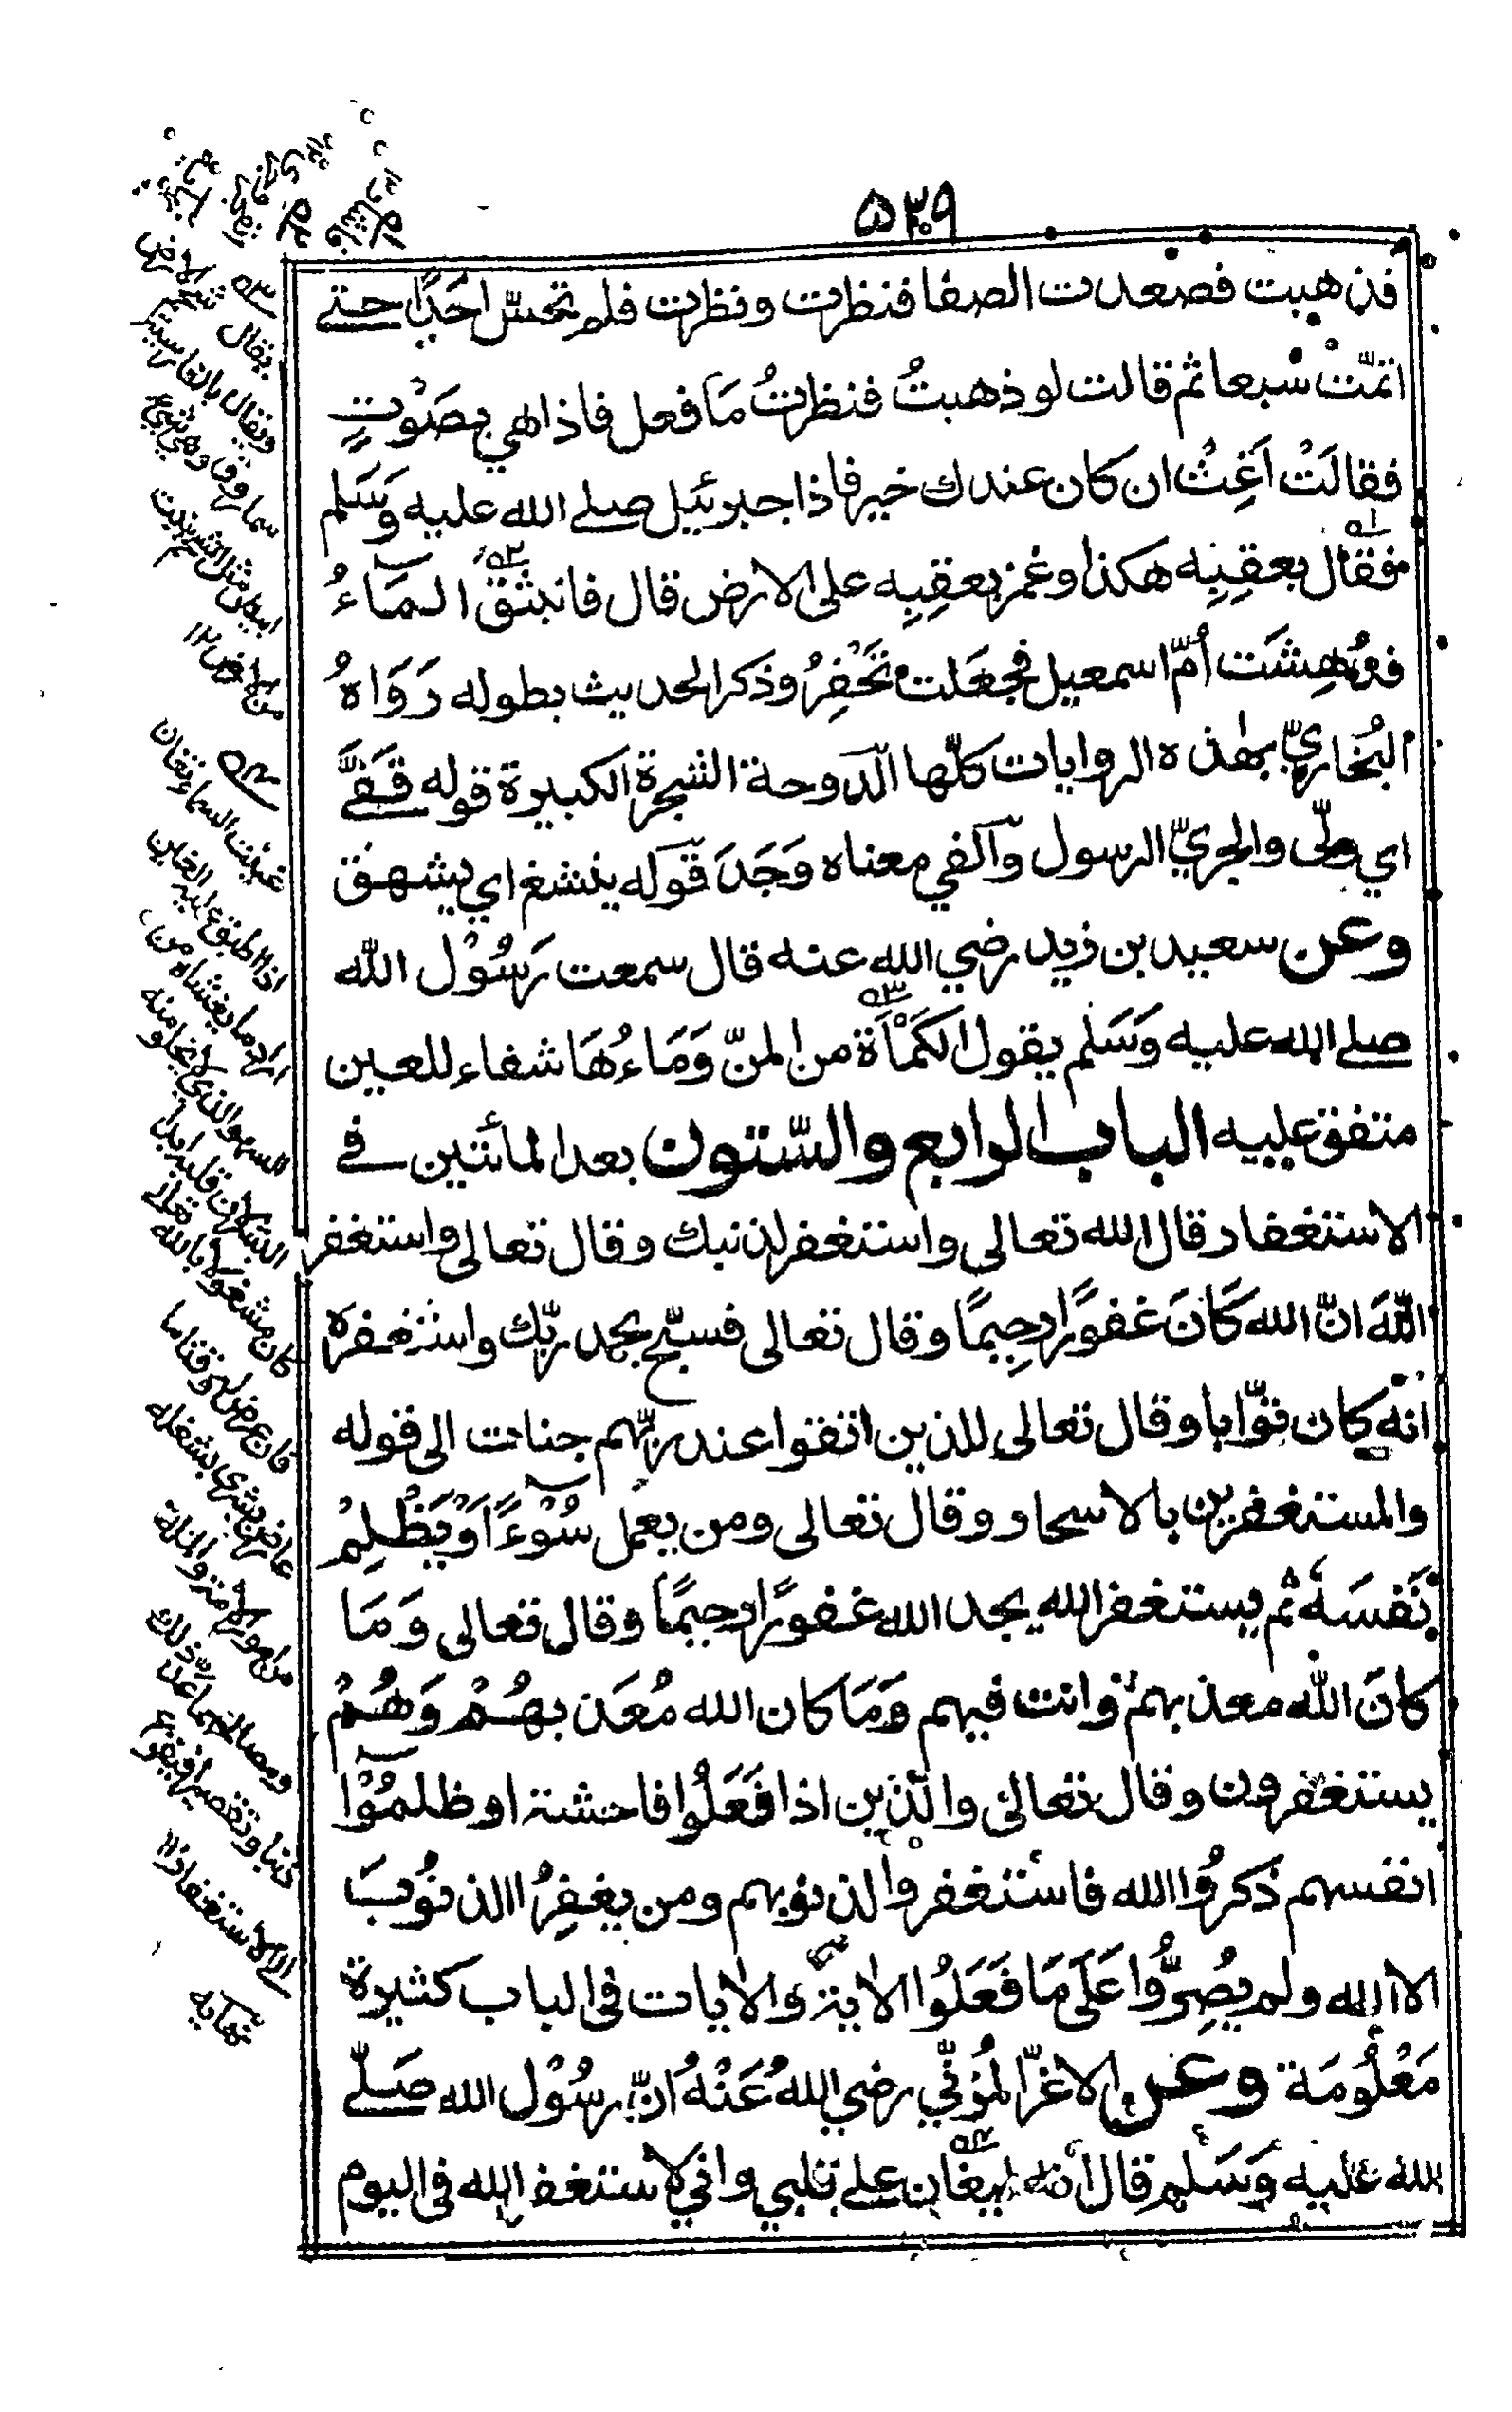 ٥٣٩
فذهبت فصعدت الصفا فنظرت ونظرت فلم تحسّ احَدًا حتے
اتمّت سْبعا ثم قالت لو ذهبتُ فنظرتُ مَا فعل فاذا هي بصَوْتٍ
فقالَتْ اَغِثْ ان كان عندك خير فاذا جبرئيل صلے الله عليه وَسَلم
فقال بعقِبِه هكذا وغمز بعقِبِه على الارض قال فانبثقَ المَاءُ
فدُهِشَت اُمّ اسمعيل فجعَلت تَحْفِرُ وذكر الحديث بطوله رَوَاهُ
البُخاريّ بهٰذه الروايات كلّها الدّوحة الشجرة الكبيرة قوله قَفَّے
اي ولّى والجريّ الرسول وآلفي معناه وَجَدَ قوله ينشغ اي يشهق
وعن سعيد بن زيد رضي الله عنه قال سمعت رَسُوْل الله
صلے الله عليه وَسَلم يقول الكَمْأَة من المنّ وَمَاءُهَا شفاء للعين
متفق عليه الباب الرابع والسّتون بعد المائتين فے
الاستغفار قال الله تعالى واستغفر لذنبك وقال تعالى واستغفر
اللّهَ انّ الله كَانَ غفورًا رحِيمًا وقال تعالى فسبّح بحمد ربّك واستغفره
انّه كان توّابا وقال تعالى للذين اتقوا عند ربّهم جنات الى قوله
والمستغفرين بالاسحار وقال تعالى ومن يعمل سُوْءًا اَوْ يَظْلِمْ
نَفسَهٗ ثم يستغفر الله يجد الله غفورًا رحيمًا وقال تعالى وَمَا
كانَ الله معذبهم وانت فيهم وَمَا كان الله مُعَذبهُمْ وَهُمْ
يستغفرون وقال تعالى والّذين اذا فَعَلُوا فاحشة او ظلمُوْا
انفسهم ذكرُوا الله فاستغفروا لذنوبهم ومن يغفِرُ الذنوُبَ
الا الله ولم يصِرُّوا عَلَى مَا فَعَلُوا الاية والايات في الباب كثيرة
مَعْلُومَة وعن الاغرّ المُزنّي رضي اللهُ عَنْهُ انّ رسُوْل الله صَلّے
الله عليه وَسَلم قال انّه ليغان علے قلبي واني لاستغفر الله في اليوم
غينت السماء تغان
اذا اطبق عليه الغين
اراد ما يغشاه من
السهو الذي لا يخلو منه
البشر لان قلبه ابدا
كان مشغولا بالله تعالى
فان عرض له وقتا ما
عارض بشري يشغله
من امور الامة والملة
ومصالحهما عد ذلك
ذنبا وتقصيرا فيفزع
الى الاستغفار ١٢
نهايه